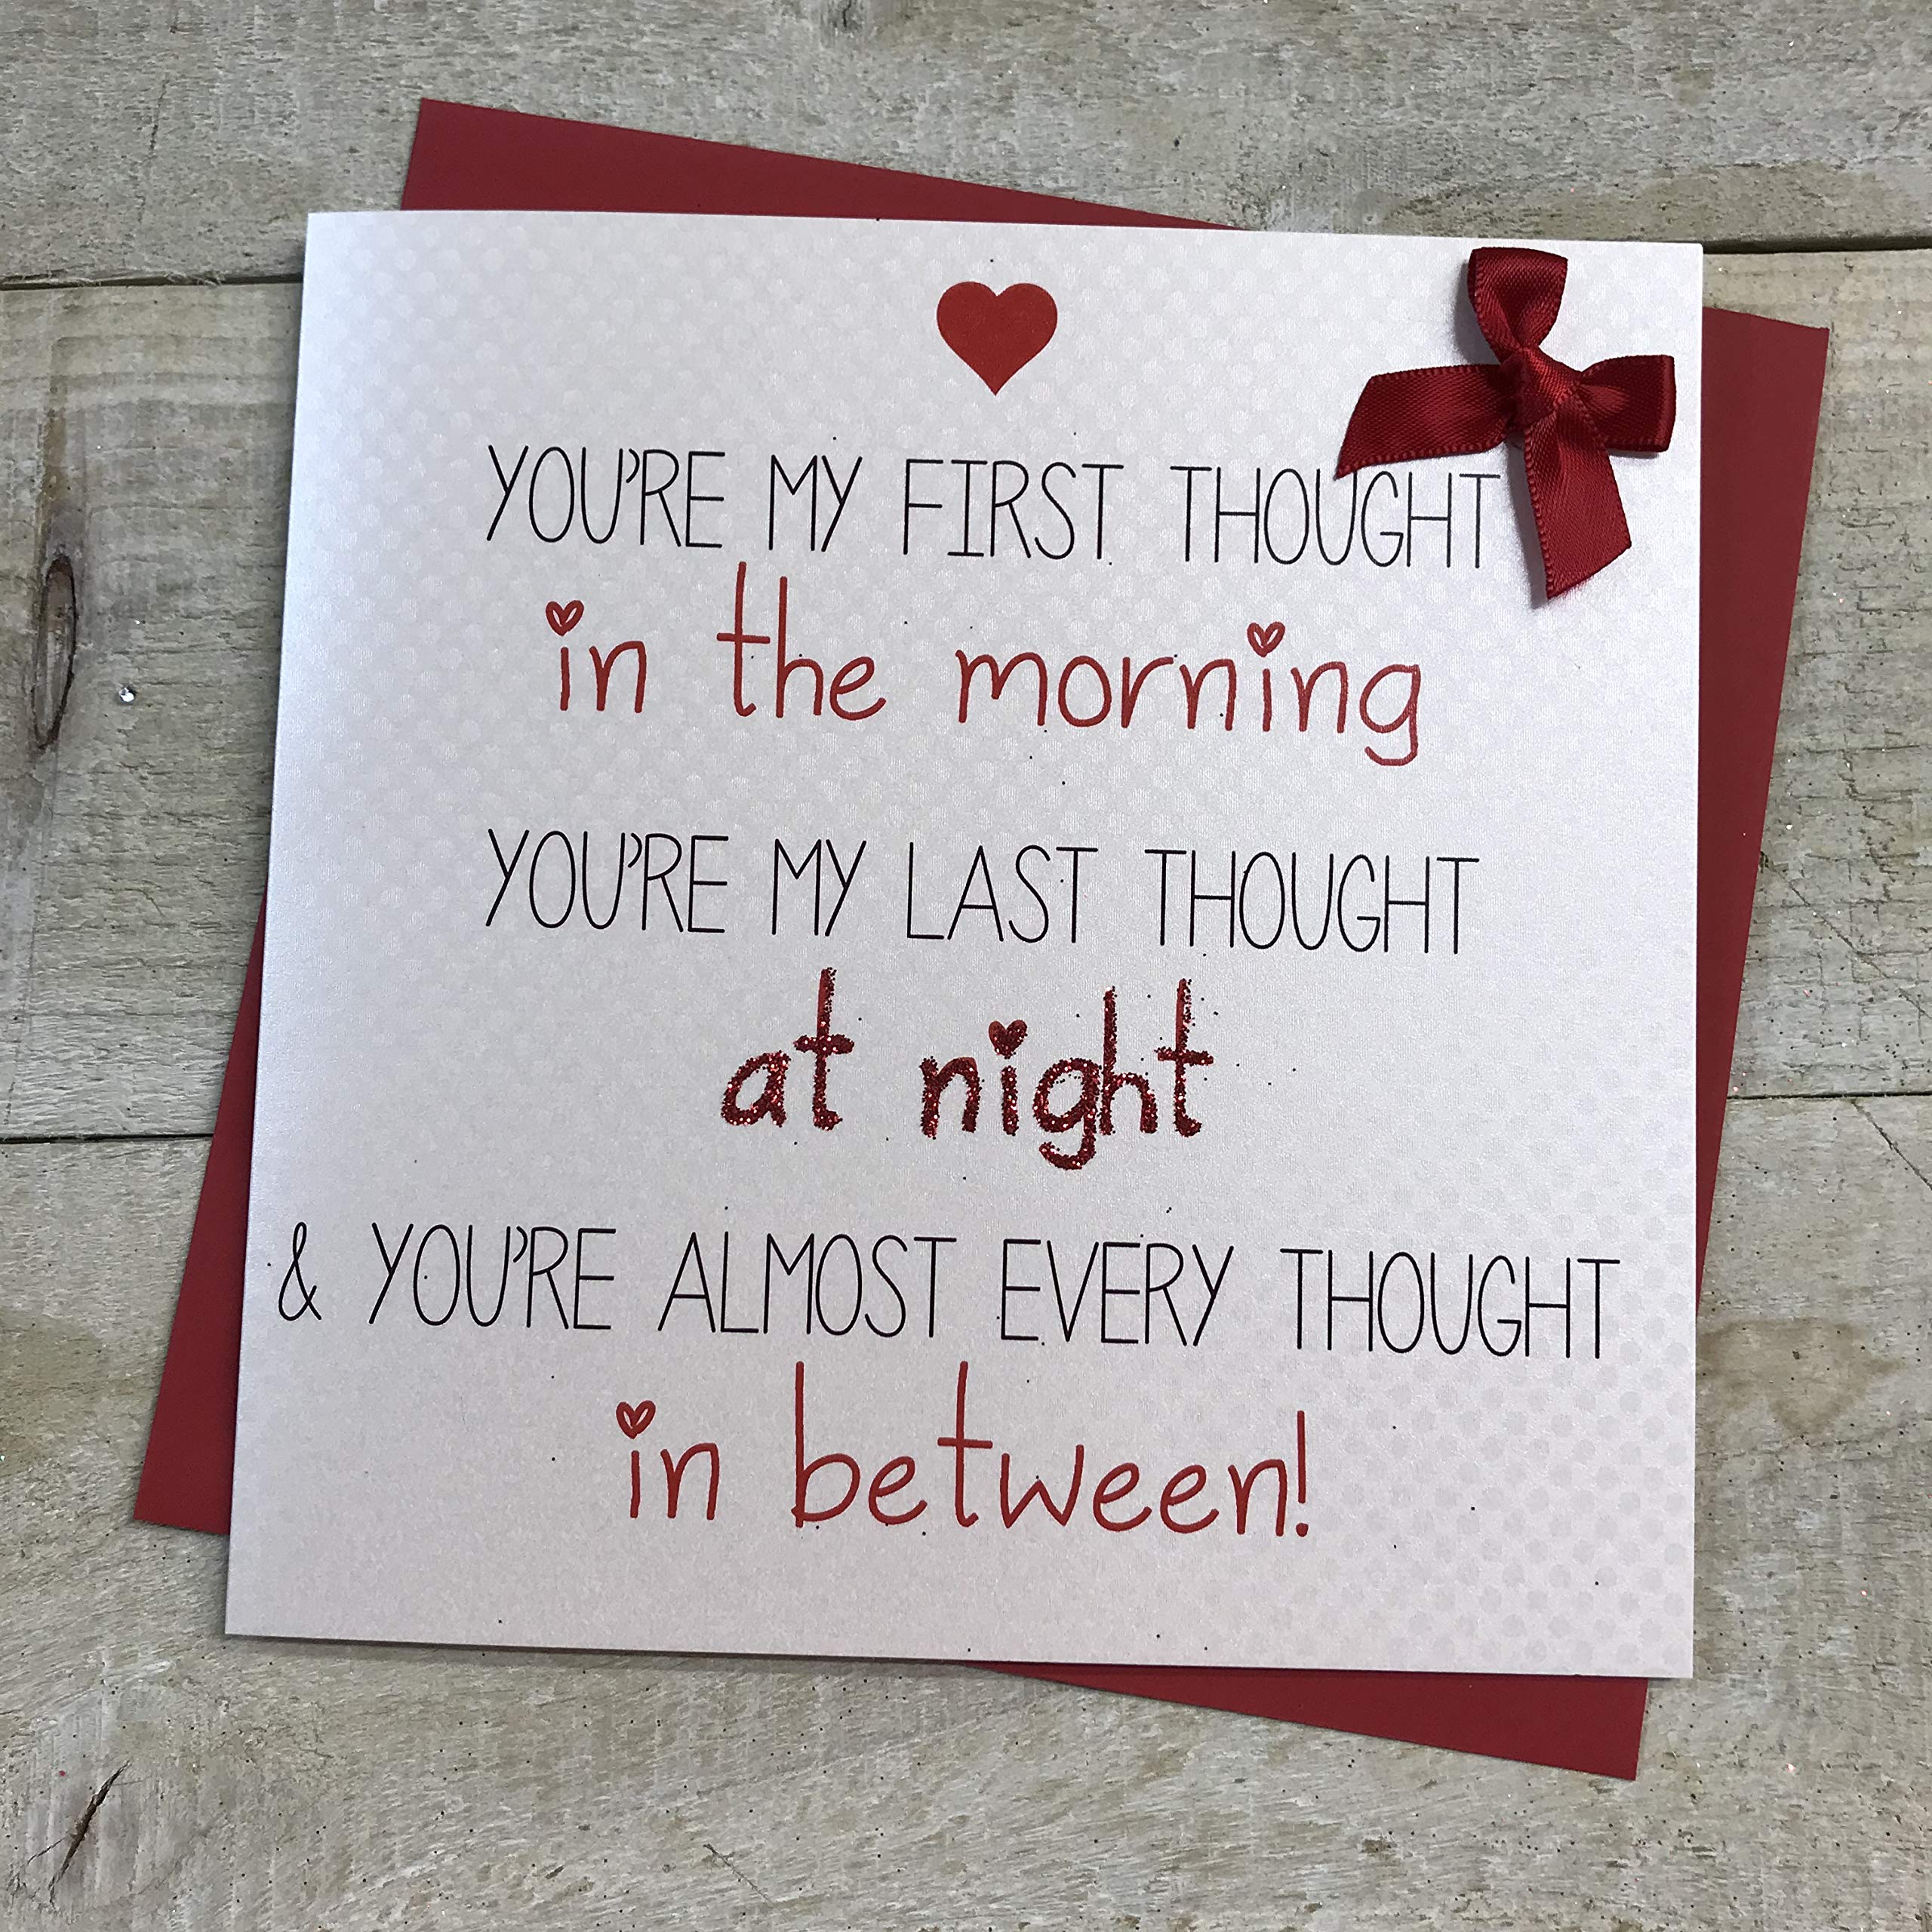 YOU'RE MY FIRST THOUGHT
in the morning
YOU'RE MY LAST THOUGHT
at night
& YOU'RE ALMOST EVERY THOUGHT
in between!